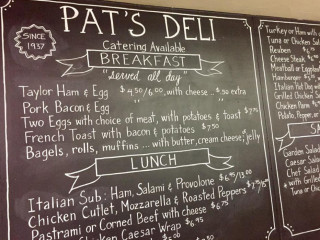 PAT'S DELI
SINCE 1937
Catering Available
BREAKFAST
"served all day"
Taylor Ham & Egg $4.50/6.00, with cheese .. $.50 extra
Pork Bacon & Egg " "
Two Eggs with choice of meat, with potatoes & toast $7.75
French Toast with bacon & potatoes $7.50
Bagels, rolls, muffins ... with butter, cream cheese, jelly
LUNCH
Italian Sub: Ham, Salami & Provolone
Chicken Cutlet, Mozzarella & Roasted Peppers
Pastrami or Corned Beef with cheese $6.75
Chicken Caesar Wrap $6.95
Turkey or Ham with
Tuna or Chicken Salad
Reuben
Cheese Steak
Meatball or Eggplant
Hamburger
Italian Hot Dog
Grilled Chicken
Chicken Parm
Potato, Pepper,
Garden Salad
Caesar Salad
Chef Salad
with Grilled
Tuna or Chic